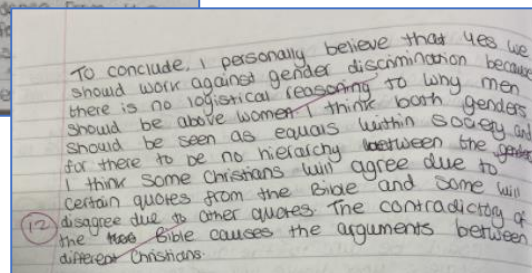 To conclude, I personally believe that yes we
should work against gender discrimination because
there is no logistical reasoning to why men
should be above women I think both genders
should be seen as equals within society and
for there to be no hierarchy between the gender
I think some Christians will agree due to
certain quotes from the Bible and some will
12 disagree due to other quotes. The contradictory of
the Bible causes the arguments between
different Christians.